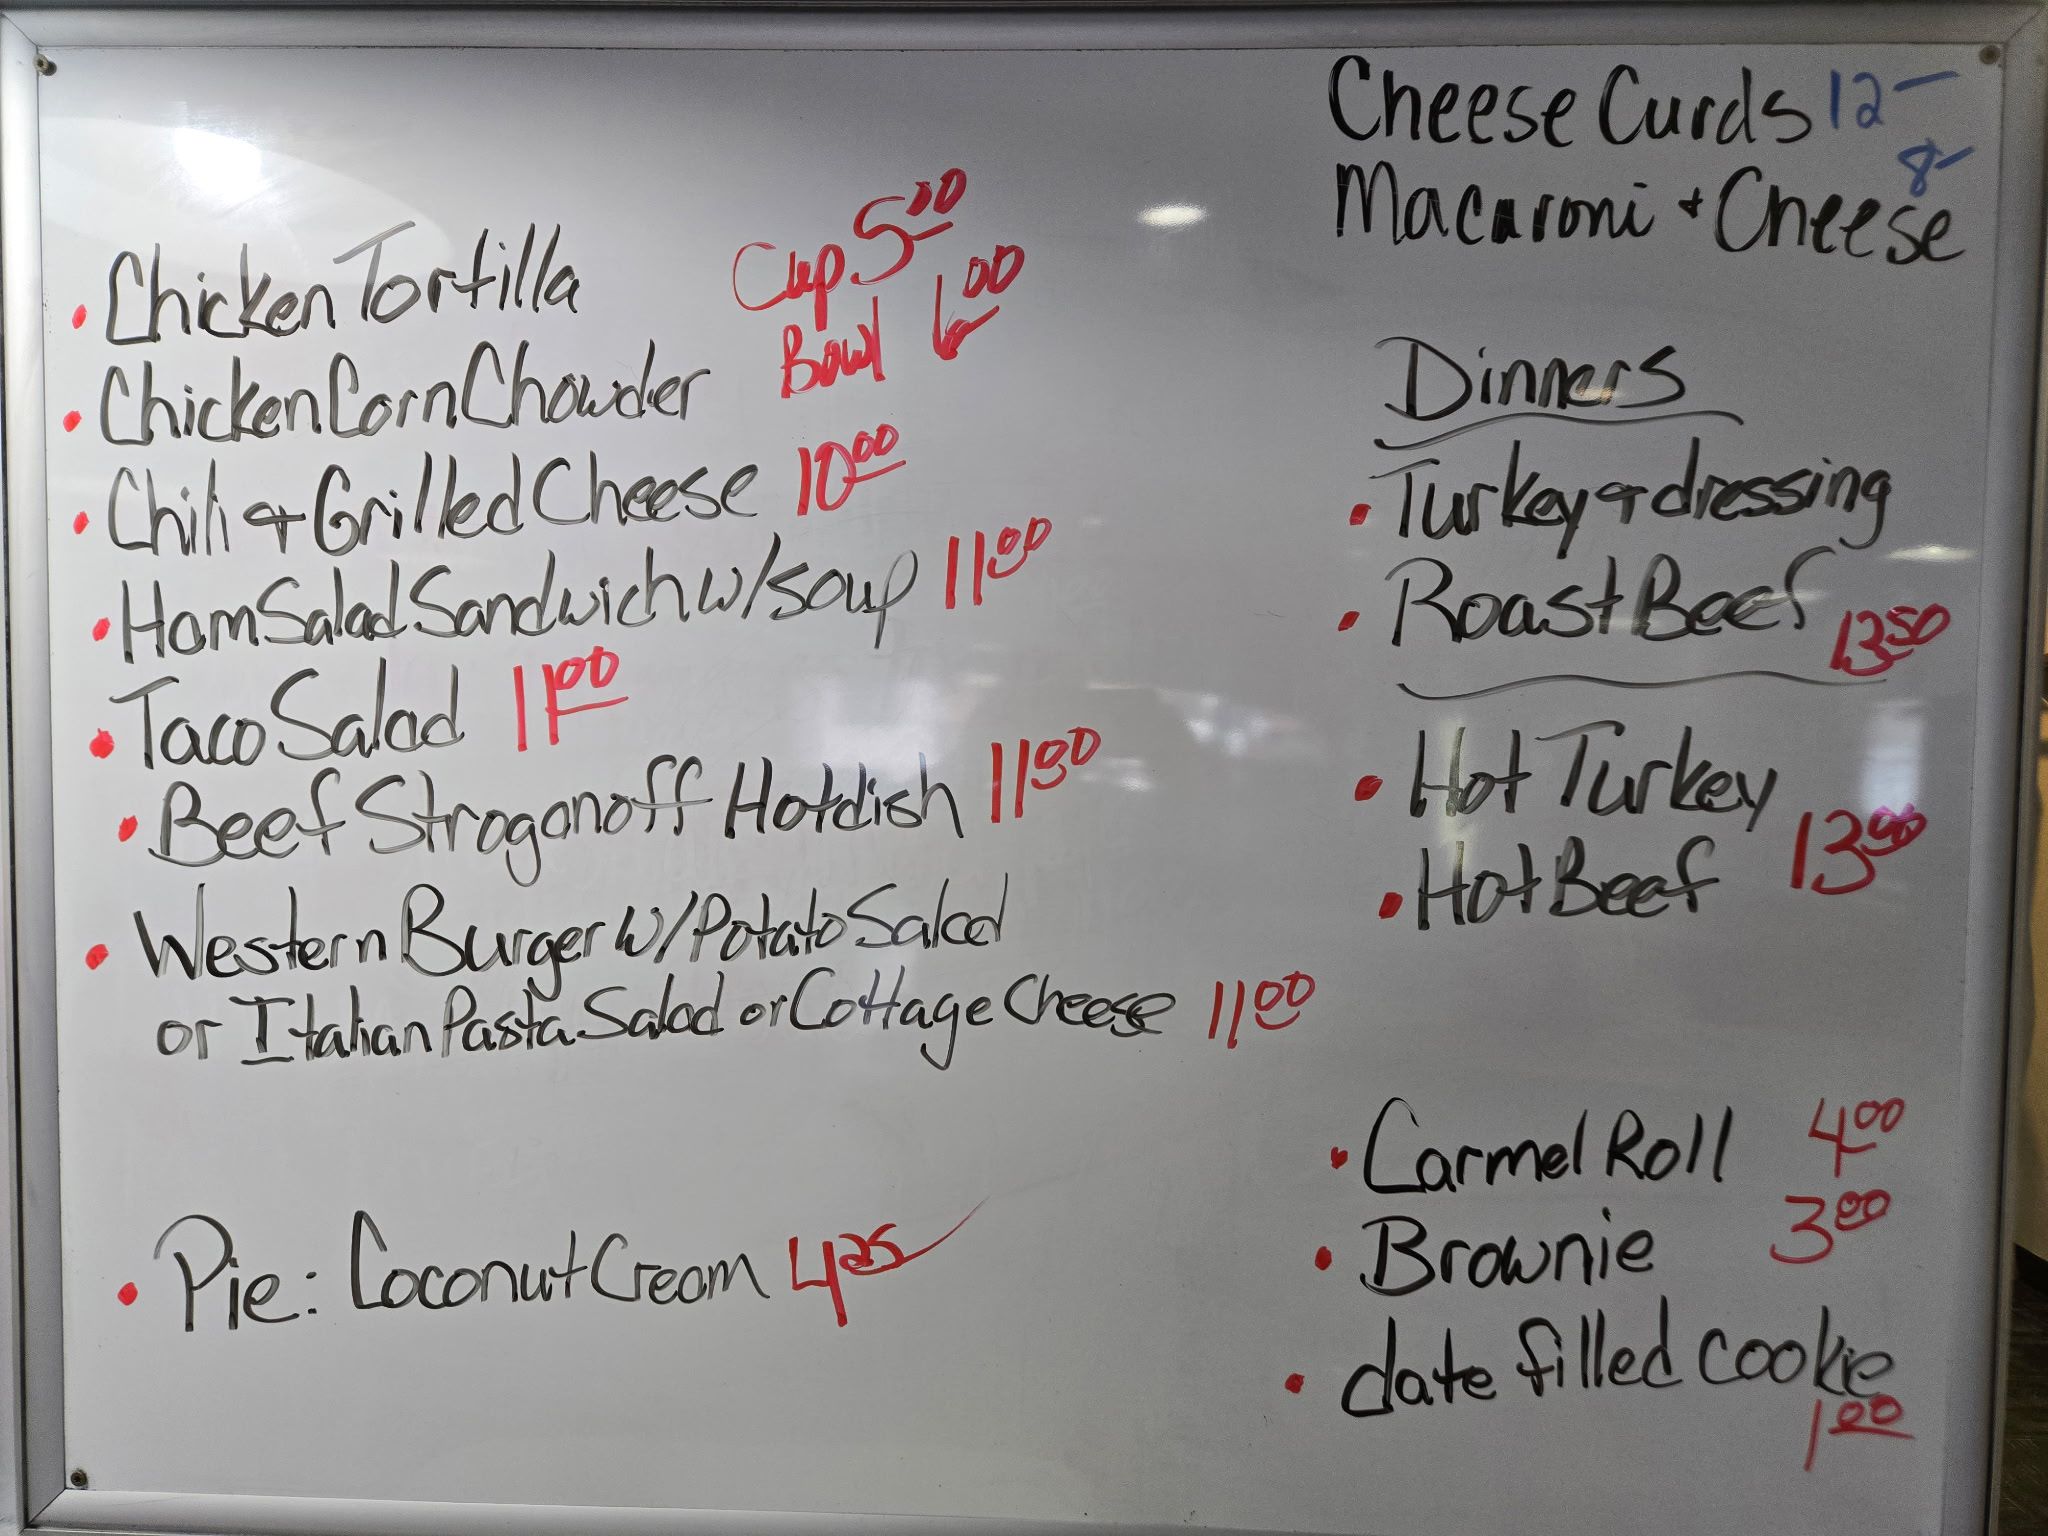 Cheese Curds 12-
8-
Macaroni + Cheese
Cup 5.00
• Chicken Tortilla
Bowl 6.00
• Chicken Corn Chowder
• Chili + Grilled Cheese 10.00
• Ham Salad Sandwich w/soup 11.00
• Taco Salad 11.00
• Beef Stroganoff Hotdish 11.00
• Western Burger w/Potato Salad
or Italian Pasta Salad or Cottage Cheese 11.00
• Pie: Coconut Cream 4.25
Dinners
• Turkey + dressing
• Roast Beef 13.50
• Hot Turkey
13.00
• Hot Beef
• Carmel Roll 4.00
• Brownie 3.00
• date filled cookie
1.00